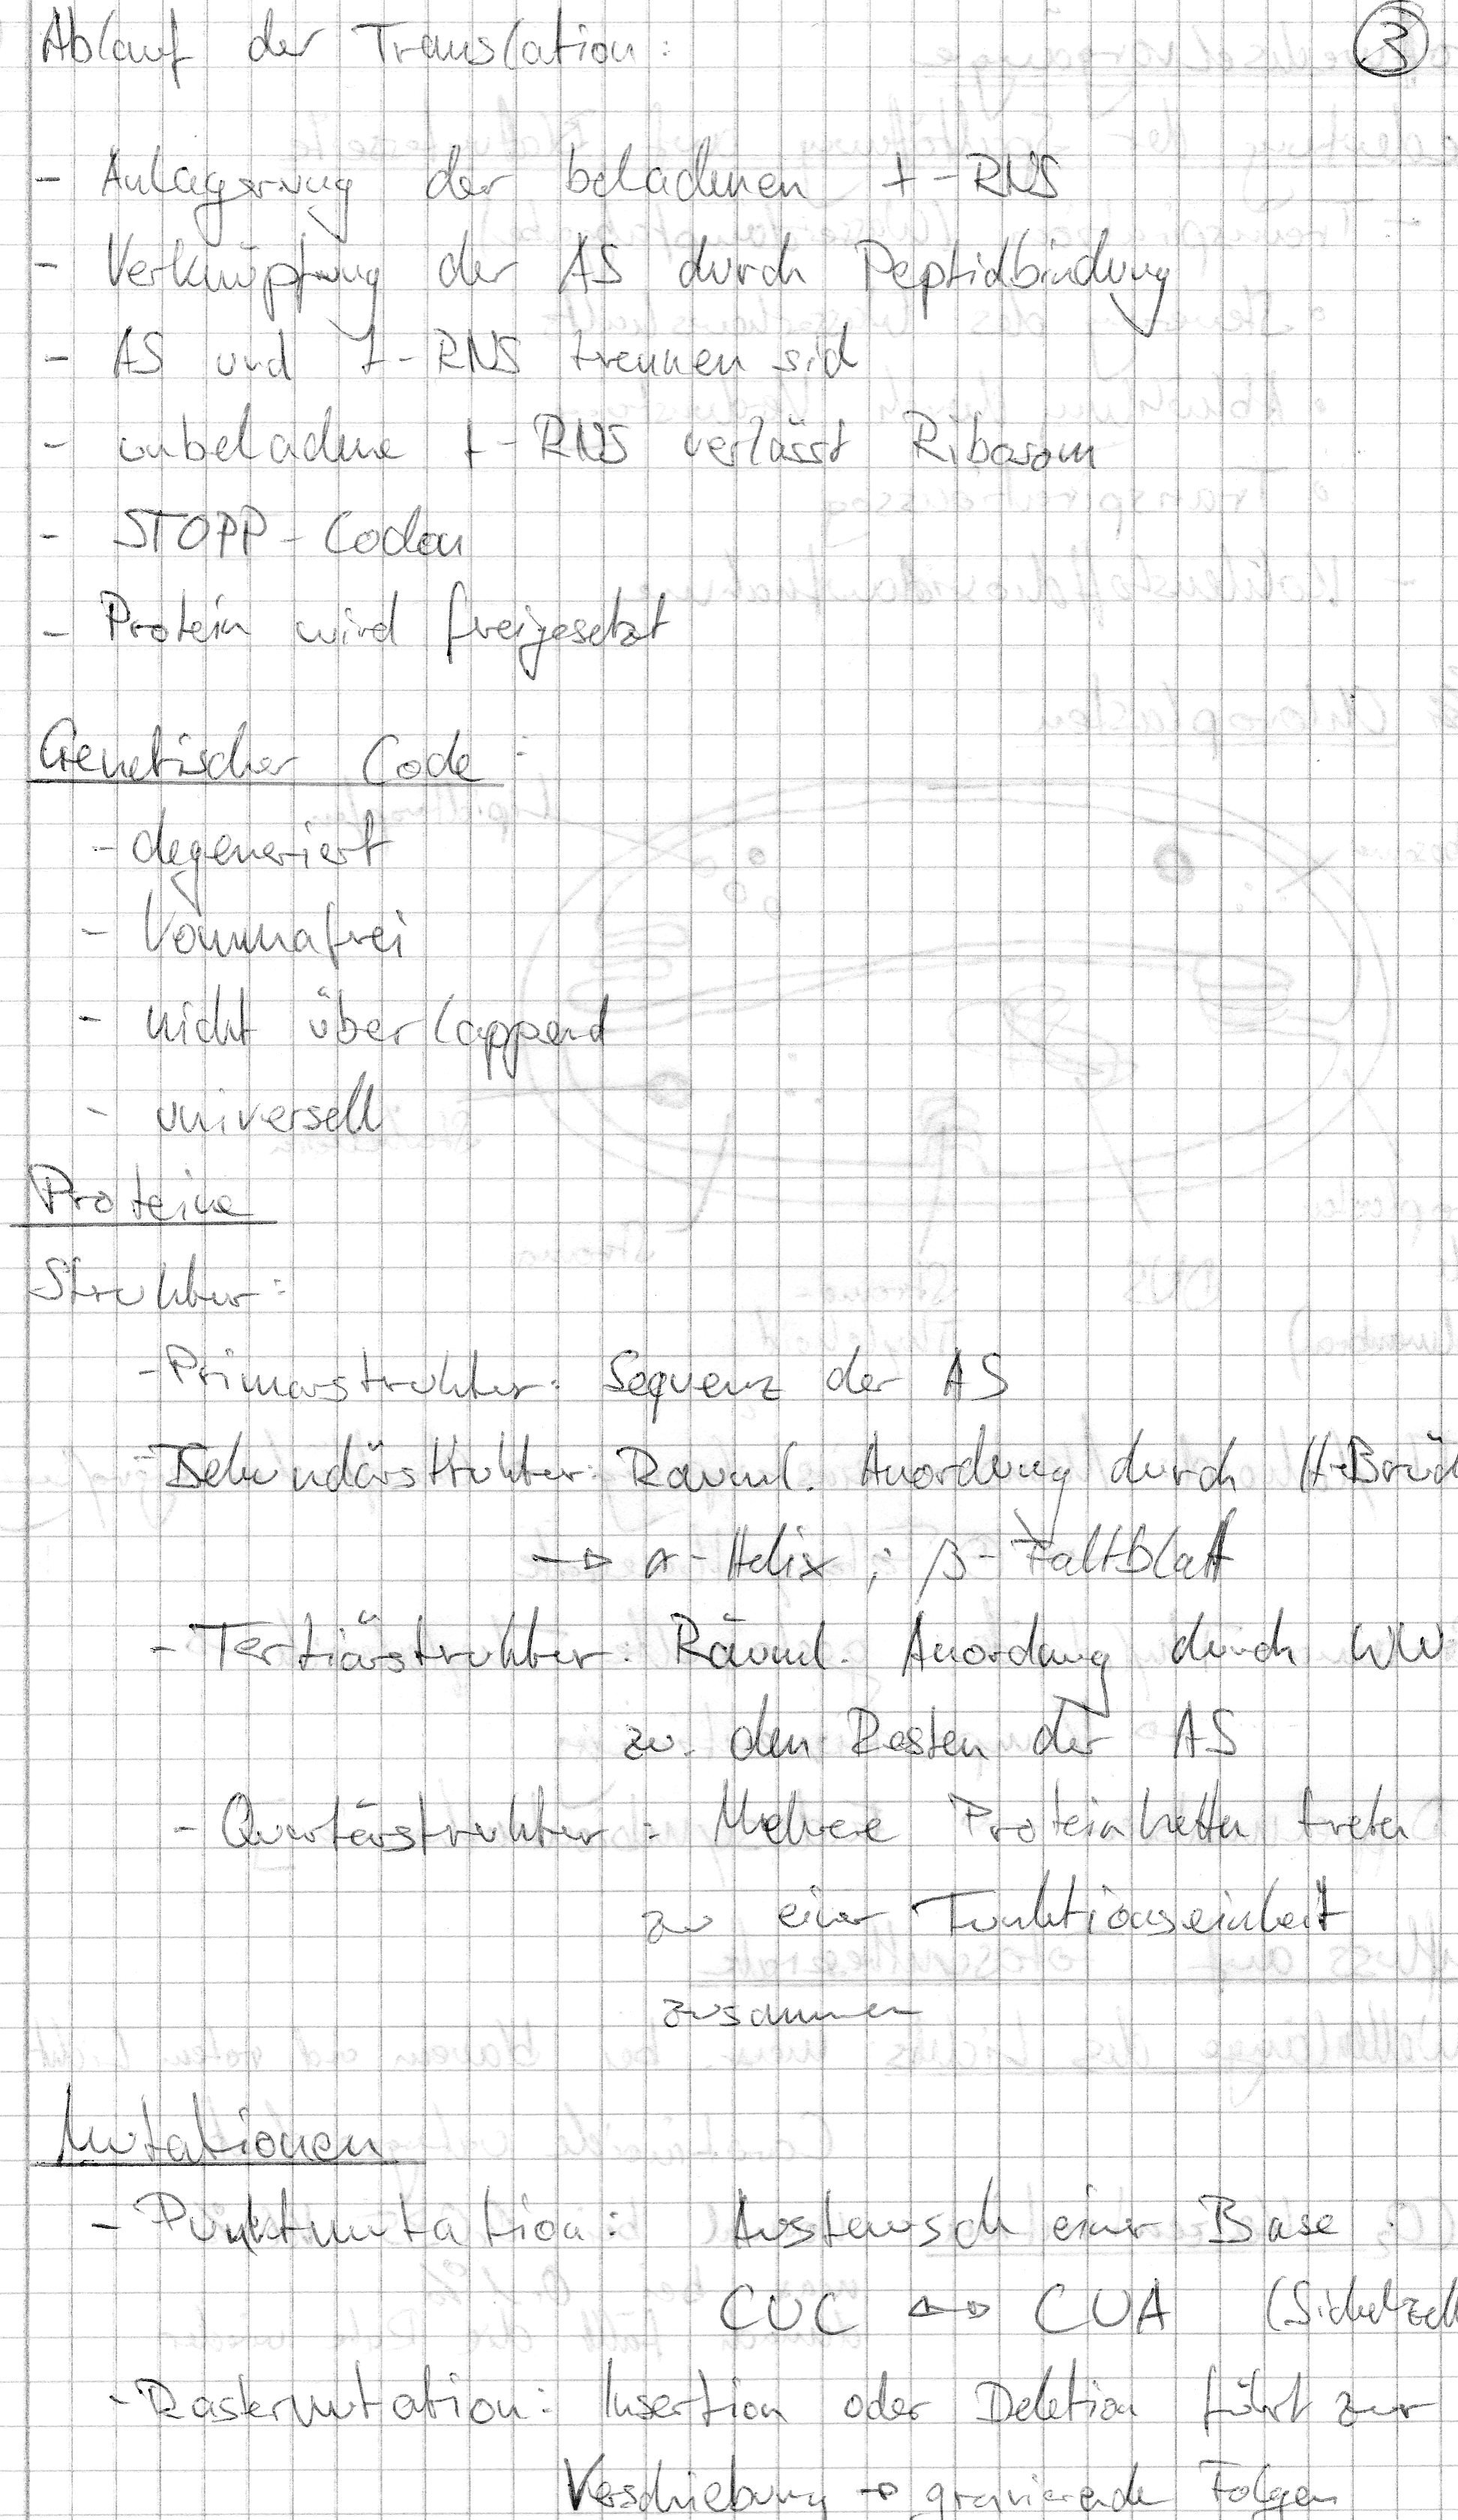 Ablauf der Translation:
3
- Anlagerung der beladenen t-RNS
- Verknüpfung der AS durch Peptidbindung
- AS und t-RNS trennen sich
- unbeladene t-RNS verlässt Ribosom
- STOPP-Codon
- Protein wird freigesetzt
Genetischer Code:
- degeneriert
- Kommafrei
- nicht überlappend
- universell
Proteine
Struktur:
- Primärstruktur: Sequenz der AS
- Sekundärstruktur: Rauml. Anordnung durch H-Brück
→ α-Helix ; β-Faltblatt
- Tertiärstruktur: Räuml. Anordnung durch WW
zw. den Resten der AS
- Quartärstruktur: Mehrere Proteinketten treten
zu einer Funktionseinheit
zusammen
Mutationen
- Punktmutation: Austausch einer Base:
CUC ↔ CUA (Sichelzell
- Rastermutation: Insertion oder Deletion führt zur
Verschiebung → gravierende Folgen